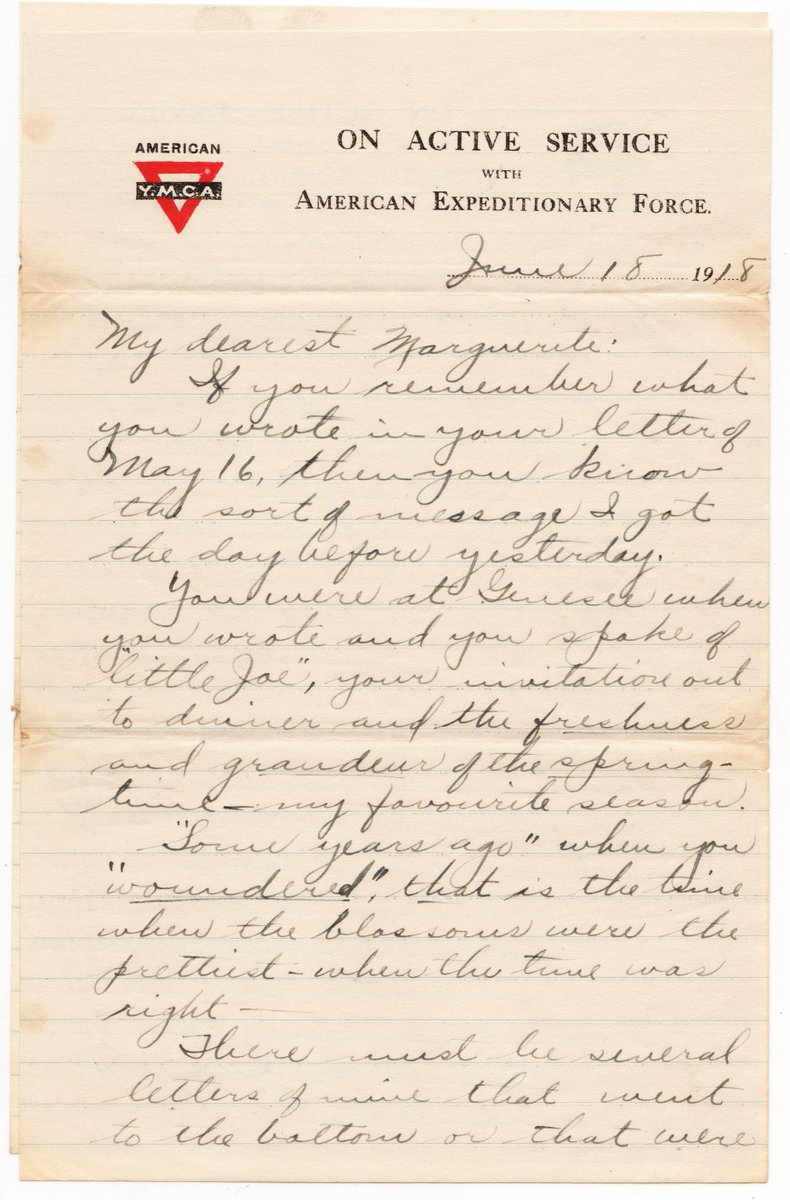 AMERICAN
Y.M.C.A.
ON ACTIVE SERVICE
WITH
AMERICAN EXPEDITIONARY FORCE.
June 18 1918
My dearest Marguerite:
If you remember what
you wrote in your letter of
May 16, then you know
the sort of message I got
the day before yesterday.
You were at Genesee when
you wrote and you spoke of
"little Joe", your invitation out
to dinner and the freshness
and grandeur of the spring-
time – my favourite season.
"Some years ago" when you
"woundered", that is the time
when the blossoms were the
prettiest – when the time was
right –
There must be several
letters of mine that went
to the bottom or that were